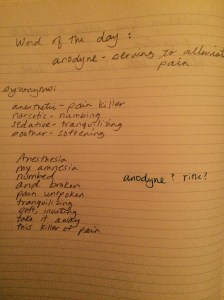 Word of the day:
anodyne - serving to alleviate
pain
synonyms:
anesthetic - pain killer
narcotic - numbing
sedative - tranquilizing
soother - softening
Anesthesia
my amnesia
numbed
and broken
pain unspoken
tranquilizing
soft, inviting
take it away
this killer of pain
anodyne?